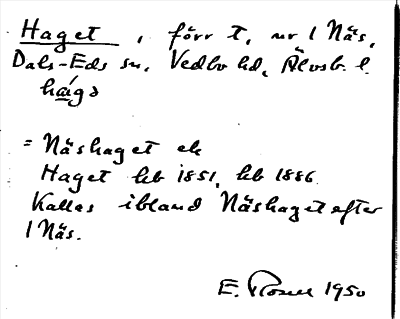 Haget, förr t, nr 1 Näs,
Dals-Eds sn, Vedbo hd, Älvsb. l.
hágə
= Näshaget ek
Haget hb 1851, hb 1886.
Kallas ibland Näshaget efter
1 Näs.
E. 1950